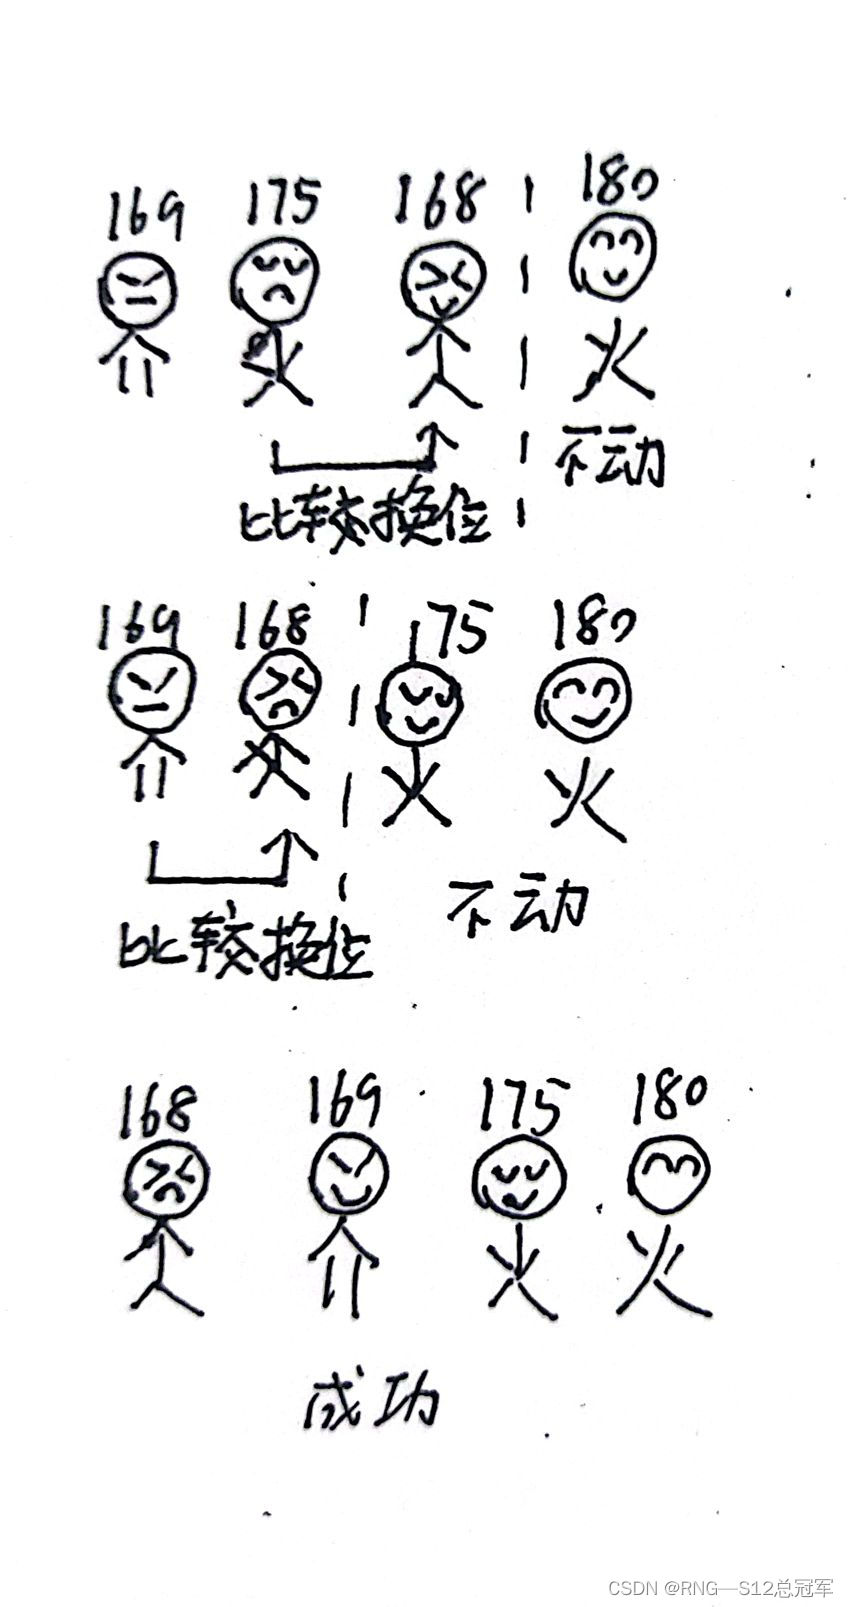 169 175 168 180
不动
比较换位
169 168 175 180
不动
比较换位
168 169 175 180
成功
CSDN @RNG—S12总冠军